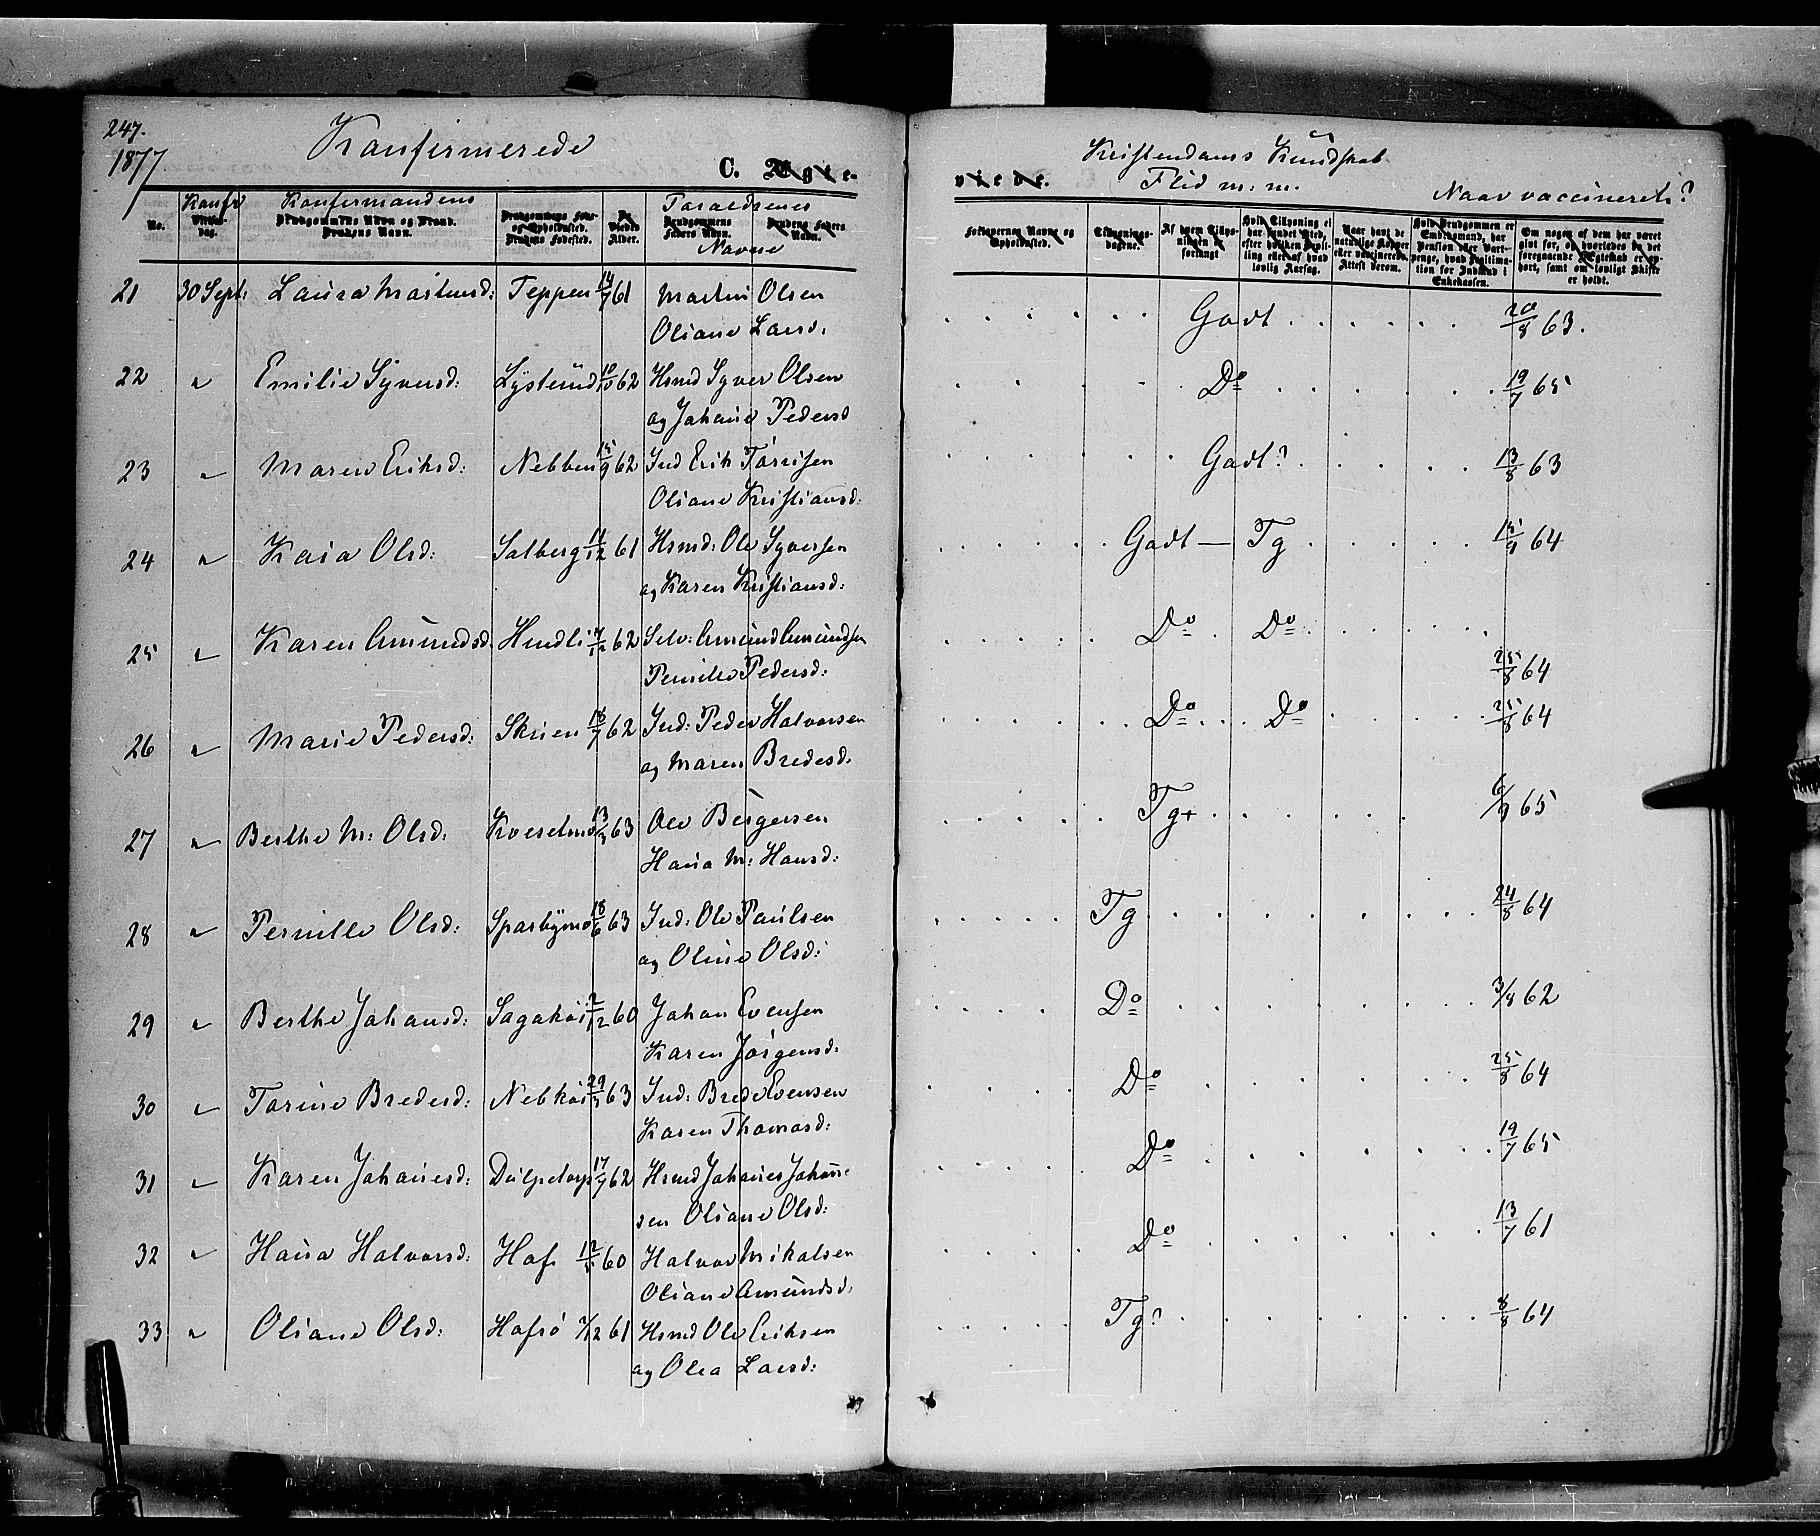 247.
1877
Konfirmerede
C. Ægte-
Konfr
Konfirmandens
Foraldrenes
No.
Vielses-
dag.
Brudgommens Navn og Stand.
Brudens Navn.
Brudgommens Føde-
og Opholdssted.
Brudens Fødested.
De
Viedes
Alder.
Brudgommens
Faders Navn.
Brudens Faders
Navn.
Navne
21 30 Sept: Laura Martinsd: Teppen 14/7 61 Martin Olsen
Oliane Larsd.
22 " Emilie Syversd: Lystünd 10/10 62 Hsmd Syver Olsen
og Johanne Pedersd
23 " Maren Eriksd: Nebben 15/9 62 Ind Erik Torrisen
Oliane Kristiansd:
24 " Kaia Olsd: Solberg 11/12 61 Hsmd: Ole Syversen
og Karen Kristiansd:
25 " Karen Amundsd. Hendli 7/12 62 Selv: Amund Amundsen
Pernille Pedersd:
26 " Marie Pedersd: Skrien 16/7 62 Ind: Peder Halvorsen
og Maren Bredesd.
27 " Berthe M: Olsd: 13/3 63 Ole Børgersen
Hana M: Hansd:
28 " Pernille Olsd: Sparbymo 18/6 63 Ind: Ole Paulsen
og Oline Olsd:
29 " Berthe Johansd: 2/12 60 Johan Evensen
Karen Jörgensd:
30 " Torine Bredesd: 29/3 63 Ind: Brede Evensen
Karen Thomasd:
31 " Karen Johanesd: 17/7 62 Hsmd Johanes Johane-
sen Oliane Olsd:
32 " Hana Halvorsd: Hof. 12/5 60 Halvor Mikalsen
Oliane Amundsd.
33 " Oliane Olsd: Hofsö 7/12 61 Hsmd Ole Eriksen
og Olea Larsd:
Kristendoms Kundskab
viede.
Flid m: m.
Naar vaccineret?
Forlovernes Navne og
Opholdssted.
Tillysnings-
dagene.
Af hvem Tillys-
ningen er
forlangt
Hvis Tillysning ei
har fundet Sted,
efter hvilken Bevil-
ling eller af hvad
lovlig Aarsag.
Naar havt de
naturlige Kopper
eller vaccinerede.
Attest derom.
Hvis Brudgommen er
Embedsmand, har
Pension eller Vart-
penge, hvad Legitima-
tion for Indskud i
Enkekassen.
Om nogen af dem har været
gift før, og hvorledes da det
foregaaende Ægteskab er op-
hørt, samt om lovligt Skifte
er holdt.
Godt 20/8 63.
Do 19/7 65
Godt? 13/8 63
Godt — Tg 15/9 64
Do Do 25/8 64
Do Do 25/8 64
Tg+ 6/9 65
Tg 24/8 64
Do 3/8 62
Do 25/8 64
Do 19/7 65
Do 13/7 61
Tg? 8/8 64